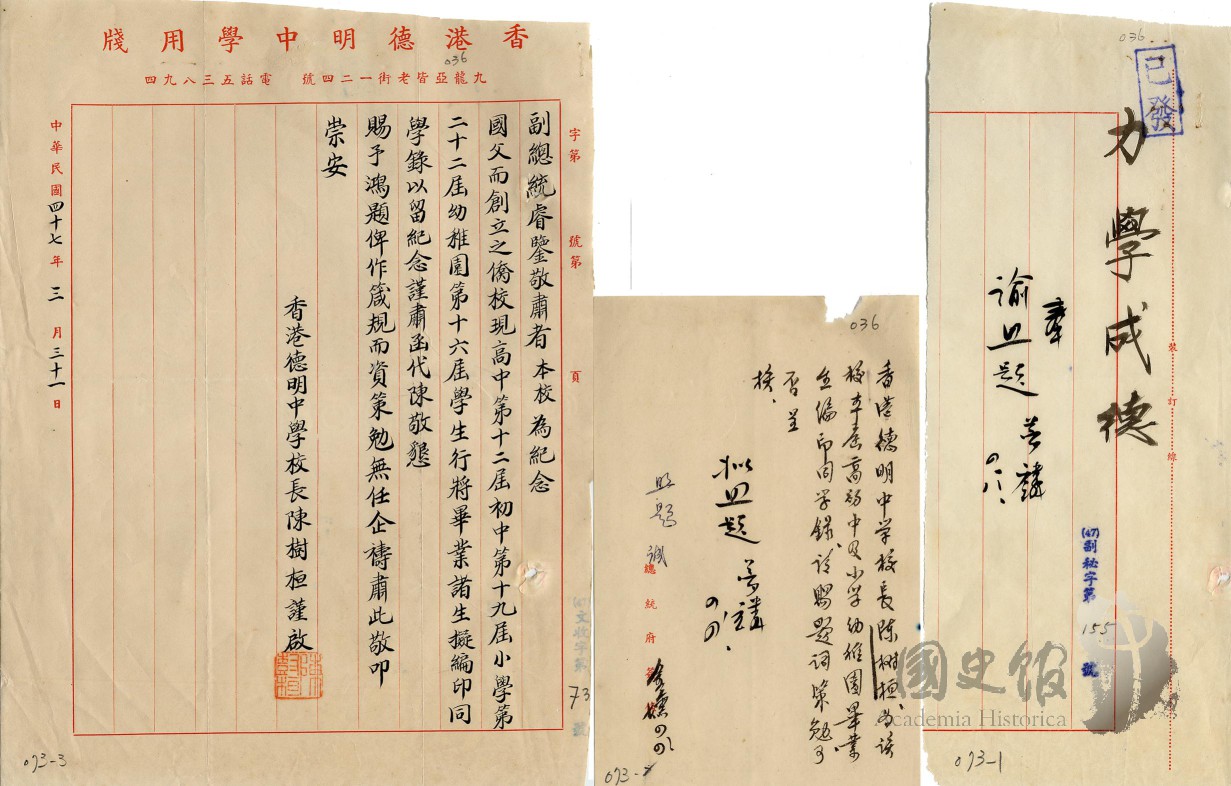 香港德明中學用牋
036
九龍亞皆老街一二四號 電話五三八九四
字第 號第 頁
副總統睿鑒敬肅者本校為紀念
國父而創立之僑校現高中第十二屆初中第十九屆小學第
二十二屆幼稚園第十六屆學生行將畢業諸生擬編印同
學錄以留紀念謹肅函代陳敬懇
賜予鴻題俾作箴規而資策勉無任企禱肅此敬叩
崇安
香港德明中學校長陳樹桓謹啟
中華民國四十七年三月三十一日
文收字第73號
073-3
036
香港德明中学校長陳樹桓、為該
校本届高初中及小学幼稚園畢業
生編印同学錄、請賜題詞策勉可
否呈
核、
拟照題
照題
總統府
073-2
036
已發
力學成德
奉
諭照題
裝訂線
(47)副秘字第155號
國史館
Academia Historica
073-1